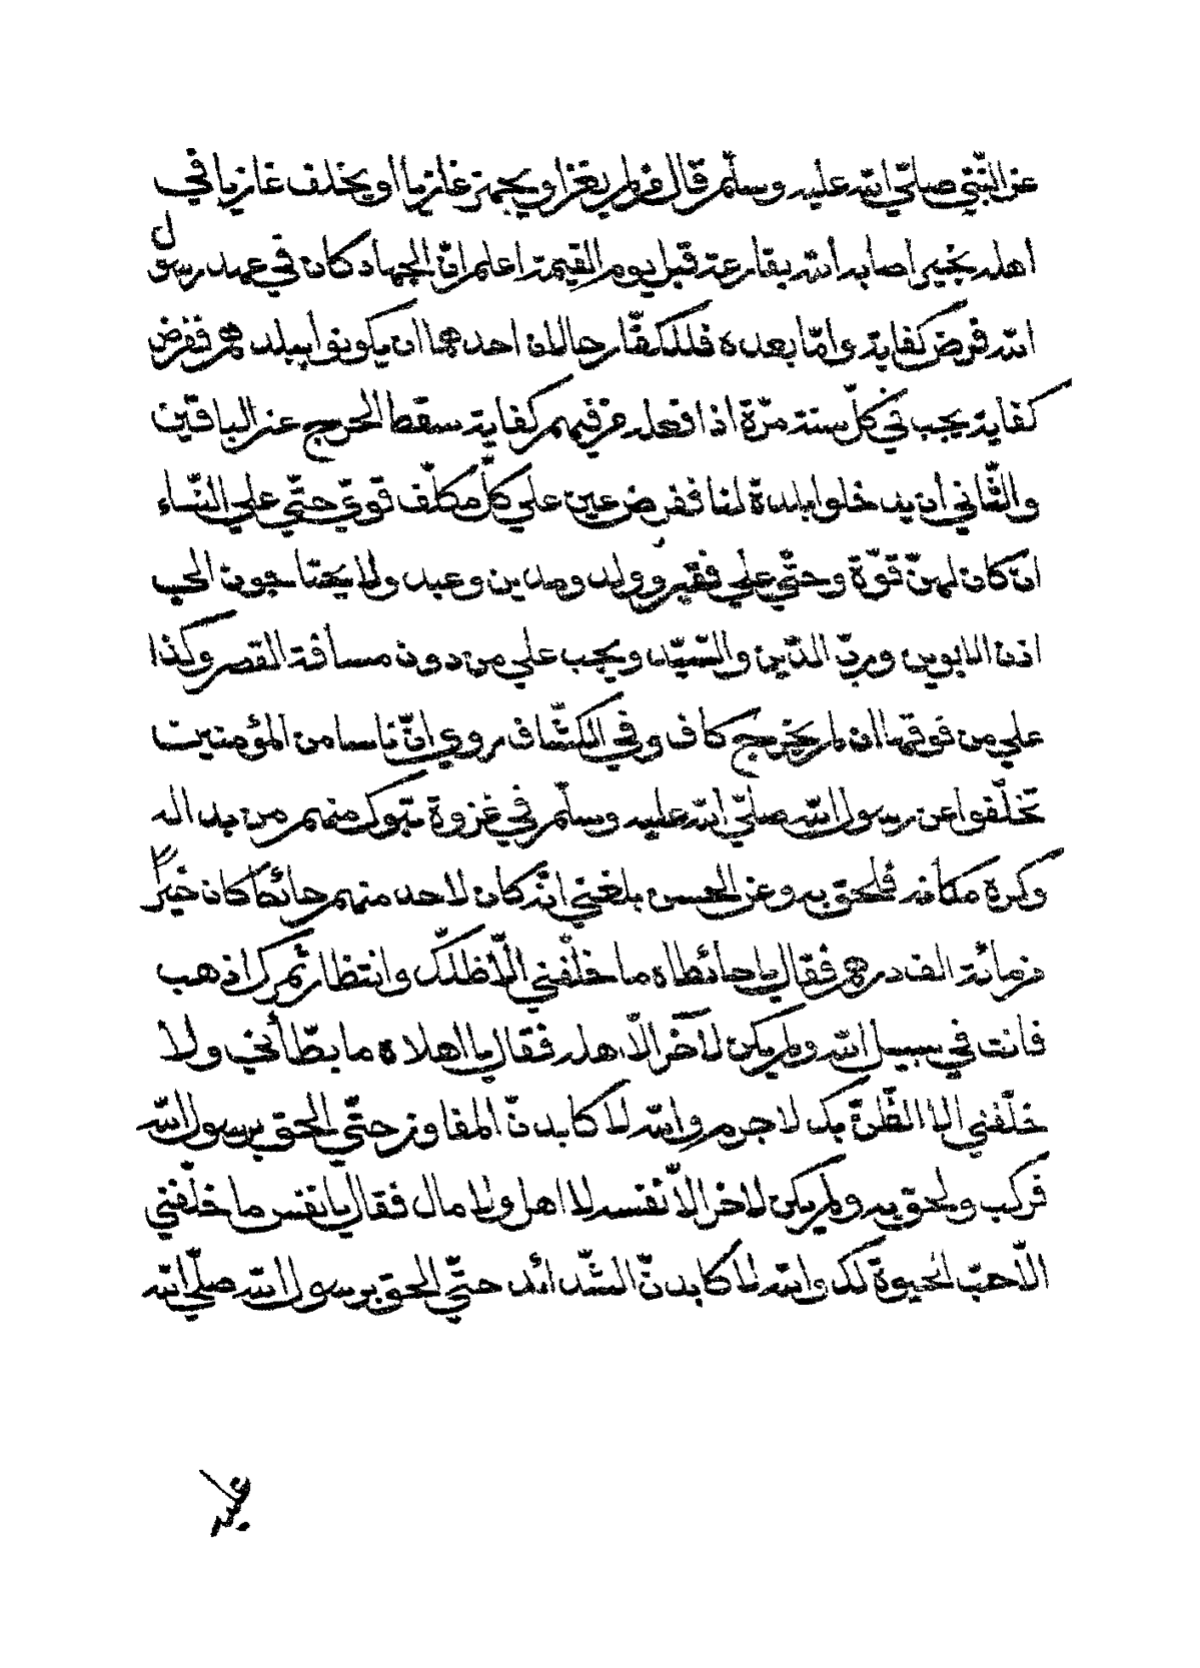 عن النّبيّ صلّي اللّه عليه وسلّم قال من لم يغز او يجهز غازيا او يخلف غازيا في
اهله بخير اصابه اللّه بقارعة قبل يوم القيمة اعلم انّ الجهاد كان في عهد رسول
اللّه فرض كفاية وامّا بعده فللكفّار حالان احدهما ان يكونوا ببلدهم ففرض
كفاية يجب في كلّ سنة مرّة اذا فعله من فيهم كفاية سقط الحرج عن الباقين
والثّاني ان يدخلوا بلدة لنا ففرض عين علي كلّ مكلّف قويّ حتّي علي النّساء
ان كان لهنّ قوّة وحتّي علي فقير وولد ومدين وعبد ولا يحتاجون الي
اذن الابوين وربّ الدّين والسّيّد ويجب علي من دون مسافة القصر وكذا
علي من فوقها ان لم يخرج كاف وفي الكشّاف روي انّ ناسا من المؤمنين
تخلّفوا عن رسول اللّه صلّي اللّه عليه وسلّم في غزوة تبوك منهم من بدا له
وكره مكانه فلحق به وعن الحسن بلغني انّه كان لاحد منهم حائط كان خيرا
من مائة الف درهم فقال يا حائطاه ما خلّفني الّا ظلّك وانتظار ثمرك اذهب
فانت في سبيل اللّه ولم يكن لآخر الّا اهله فقال يا اهلاه ما بطّأني ولا
خلّفني الا الظّنّة بك لا جرم واللّه لاكابدنّ المفاوز حتّي الحق برسول اللّه
فركب ولحق به ولم يكن لاخر الّا نفسه لا اهل ولا مال فقال يا نفس ما خلّفني
الّا حبّ الحيوة لك واللّه لاكابدنّ الشّدائد حتّي الحق برسول اللّه صلّي اللّه
عليه